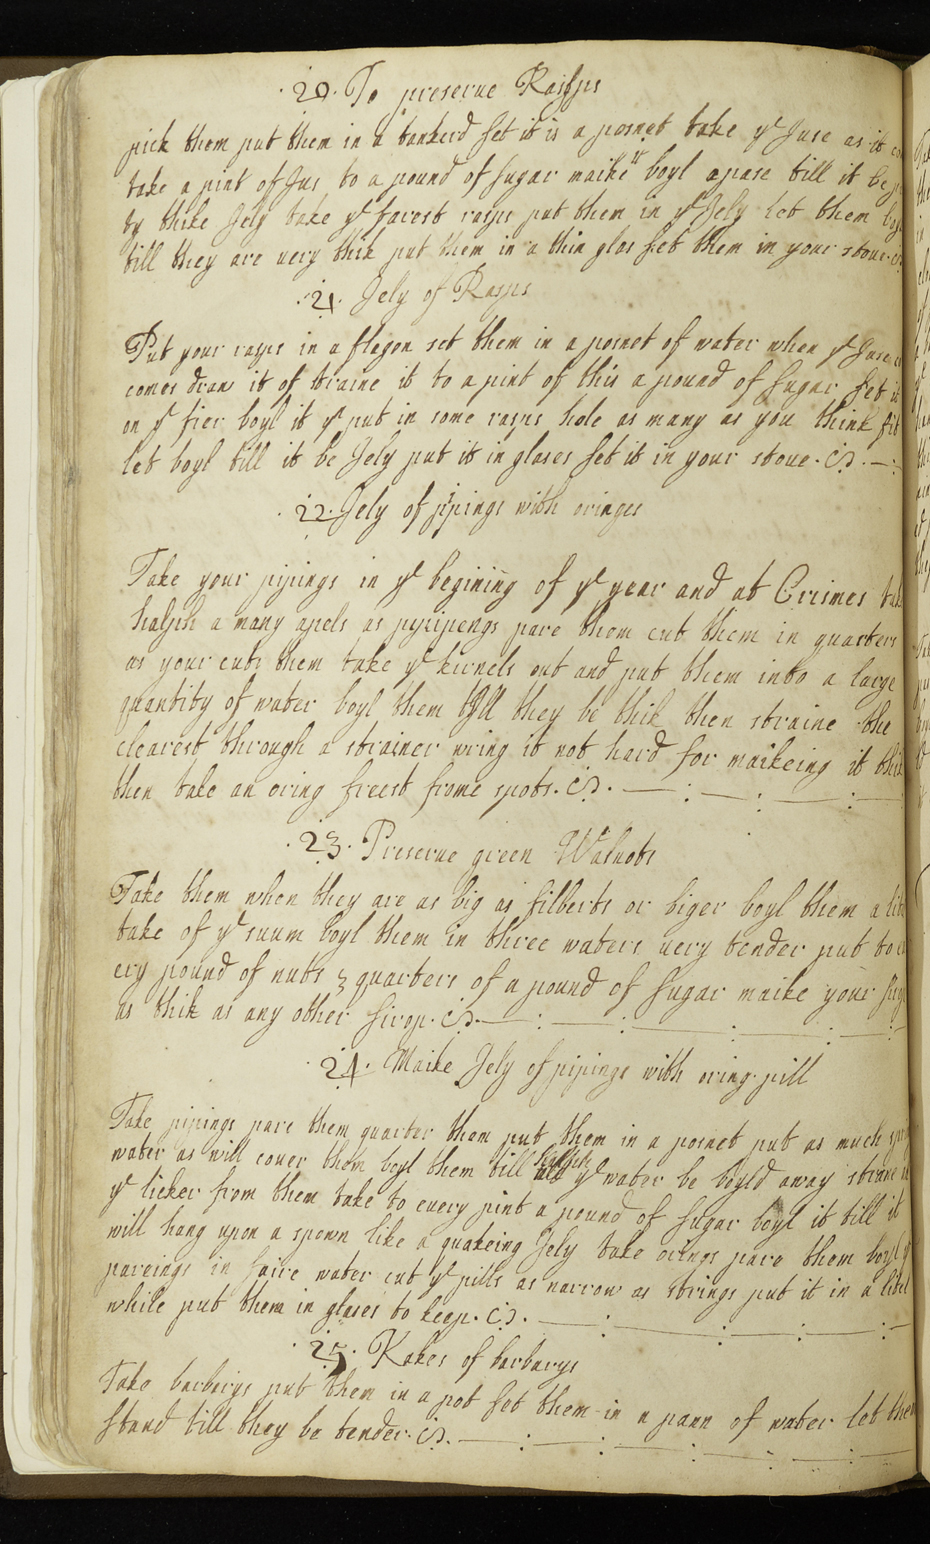 20. To preserue Rasps
pick them put them in a tankerd set it is a posnet take yᵉ Juse as it
take a pint of Jus to a pound of sugar maike it boyl apase till it be
ty thike Jely take yᵉ farest rasps put them in yᵉ Jely let them boyl
till they are uery thik put them in a thin glas set them in your stoue.
21. Jely of Rasps
Put your rasps in a flegon set them in a posnet of water when yᵉ Juse
comes draw it of straine it to a pint of this a pound of sugar set it
on yᵉ fier boyl it yᵉ put in some rasps hole as many as you think fit
let boyl till it be Jely put it in glases set it in your stoue.
22. Jely of pipings with oringes
Take your pipings in yᵉ begining of yᵉ year and at Crismes take
halph a many apels as pyupengs pare them cut them in quarters
as your cuts them take yᵉ kirnels out and put them into a large
quantity of water boyl them till they be thik then straine the
clearest through a strainer wring it not hard for maikeing it thik
then take an oring freest frome spots.
23. Preserue green Walnots
Take them when they are as big as filberts or biger boyl them a litel
take of yᵉ scum boyl them in three waters uery tender put to
ery pound of nuts 3 quarters of a pound of sugar maike your
as thik as any other sirop.
24. Maike Jely of pipings with oring pill
Take pipings pare them quarter them put them in a posnet put as much
water as will couer them boyl them till halph yᵉ water be boyld away straine
yᵉ licker from them take to euery pint a pound of sugar boyl it till it
will hang upon a spown like a quakeing Jely take orings pare them boyl yᵉ
pareings in faire water cut yᵉ pills as narrow as strings put it in a litel
while put them in glases to keep.
25. Kakes of barbarys
Take barbarys put them in a pot set them in a pann of water let them
stand till they be tender.